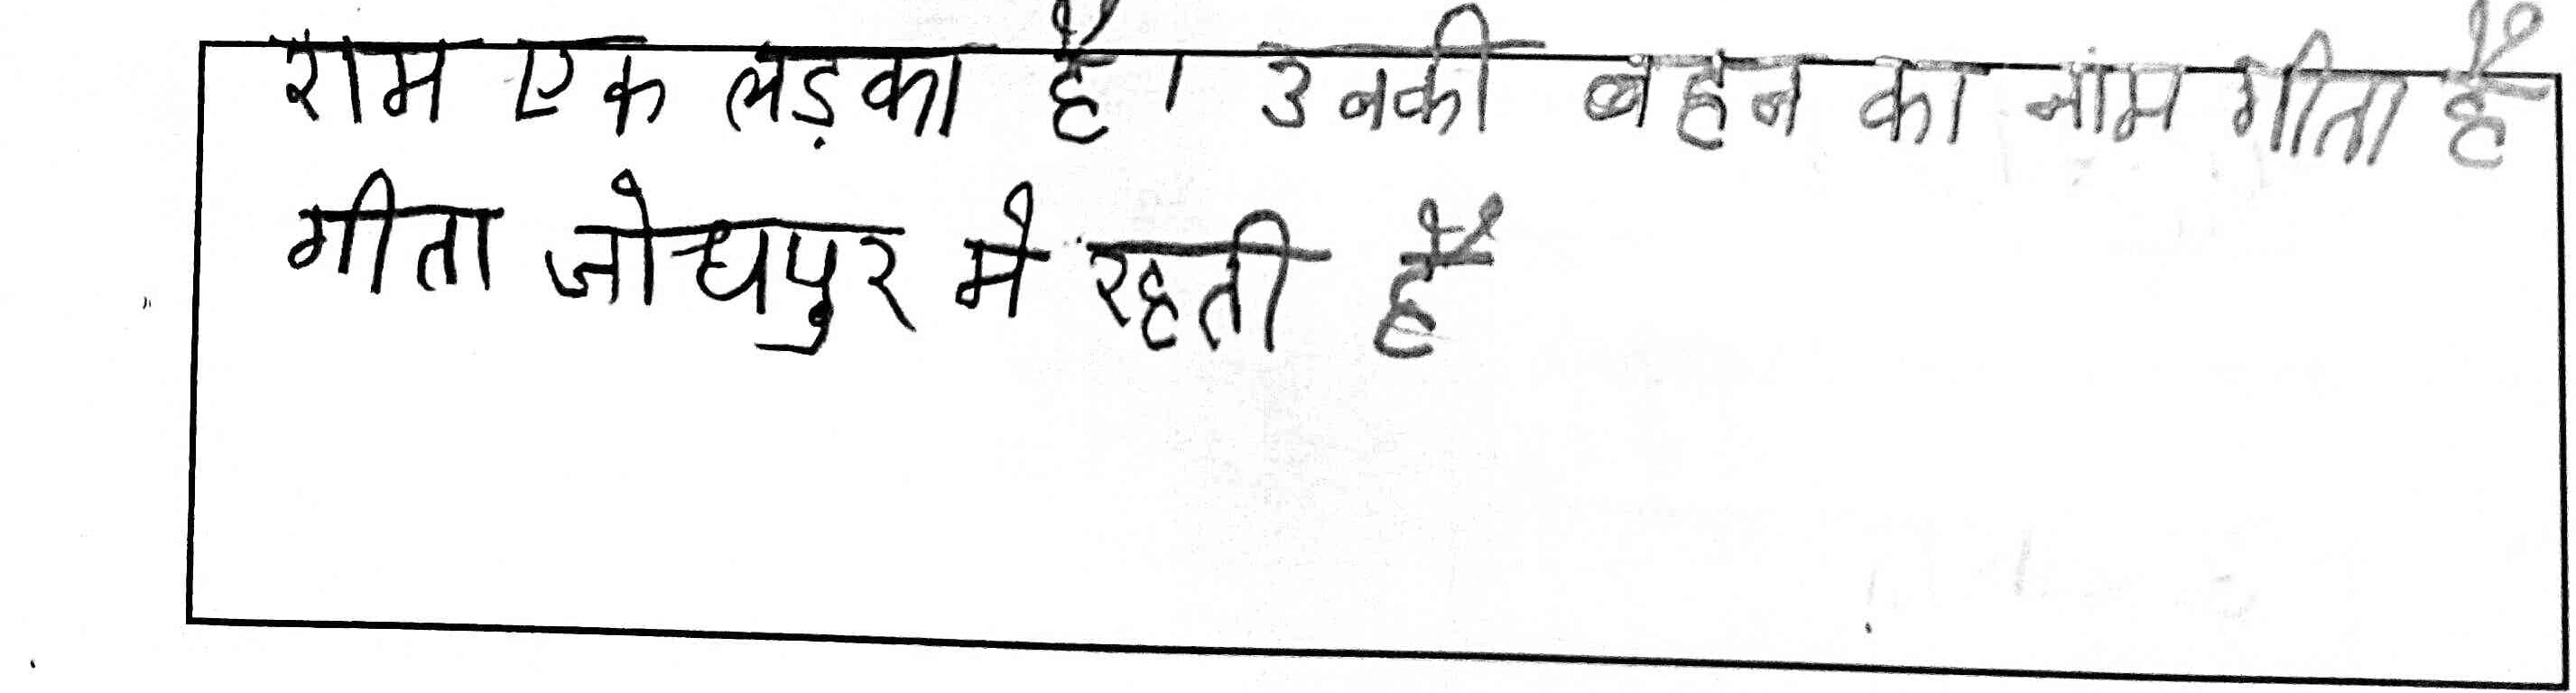 राम एक लड़का है। उनकी बहन का नाम गीता है
गीता जोधपुर मे रहती है